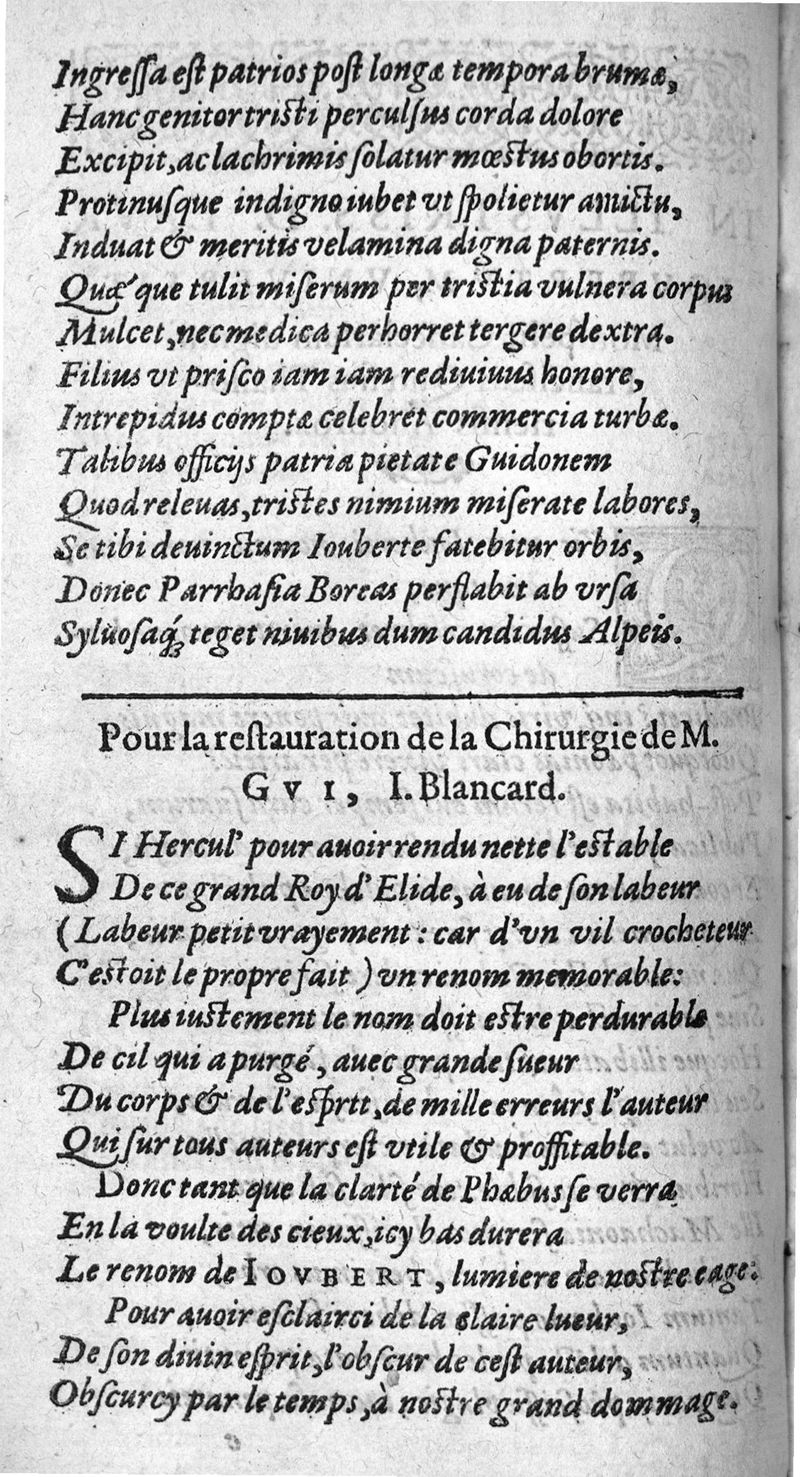 Ingreſſa eſt patrios poſt longæ tempora brumæ,
Hanc genitor triſti perculſus corda dolore
Excipit, ac lachrimis ſolatur mœſtus obortis.
Protinuſque indigno iubet vt ſpolietur amictu,
Induat & meritis velamina digna paternis.
Quǽque tulit miſerum per triſtia vulnera corpus
Mulcet, nec medica perhorret tergere dextra.
Filius vt priſco iam iam rediuiuus honore,
Intrepidus comptæ celebret commercia turbæ.
Talibus officijs patria pietate Guidonem
Quod releuas, triſtes nimium miſerate labores,
Se tibi deuinctum Iouberte fatebitur orbis,
Donec Parrhaſia Boreas perflabit ab vrſa
Syluoſaq́; teget niuibus dum candidus Alpeis.
Pour la reſtauration de la Chirurgie de M.
GVI, I. Blancard.
SI Hercul' pour auoir rendu nette l'eſtable
De ce grand Roy d'Elide, à eu de ſon labeur
(Labeur petit vrayement : car d'vn vil crocheteur
C'eſtoit le propre fait) vn renom memorable:
Plus iuſtement le nom doit eſtre perdurable
De cil qui a purgé, auec grande ſueur
Du corps & de l'eſprtt, de mille erreurs l'auteur
Qui ſur tous auteurs eſt vtile & proffitable.
Donc tant que la clarté de Phœbus ſe verra
En la voulte des cieux, icy bas durera
Le renom de IOVBERT, lumiere de noſtre eage:
Pour auoir eſclairci de la claire lueur,
De ſon diuin eſprit, l'obſcur de ceſt auteur,
Obſcurcy par le temps, à noſtre grand dommage.